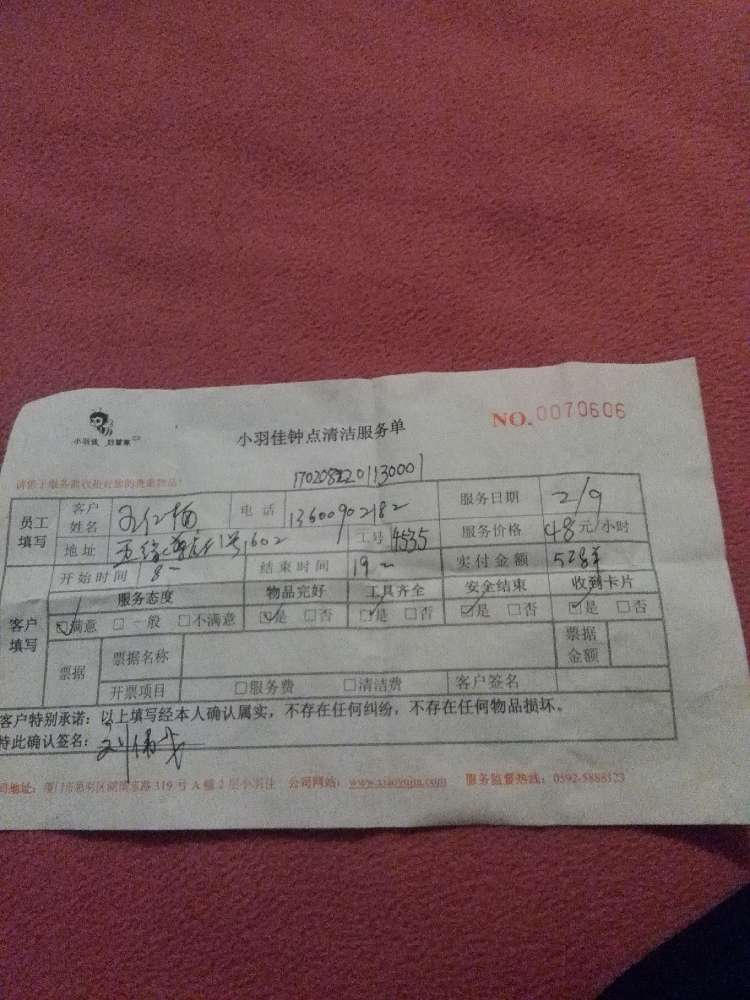 小羽佳 妙管家
小羽佳钟点清洁服务单
NO.0070606
请勿于服务前收拾好您的贵重物品!
员工填写
客户姓名
电话 13600902182
服务日期 2/9
地址 1号1602
工号 4535
服务价格 48元/小时
开始时间 8
结束时间 19
实付金额 528
客户填写
服务态度 物品完好 工具齐全 安全结束 收到卡片
满意 一般 不满意 是 否 是 否 是 否 是 否
票据
票据名称
票据金额
开票项目 服务费 清洁费 客户签名
客户特别承诺:以上填写经本人确认属实,不存在任何纠纷,不存在任何物品损坏。
特此确认签名:
司地址:厦门市思明区湖滨东路319号A幢2层小羽佳 公司网站:www.xiaoyujia.com 服务监督热线:0592-5888123